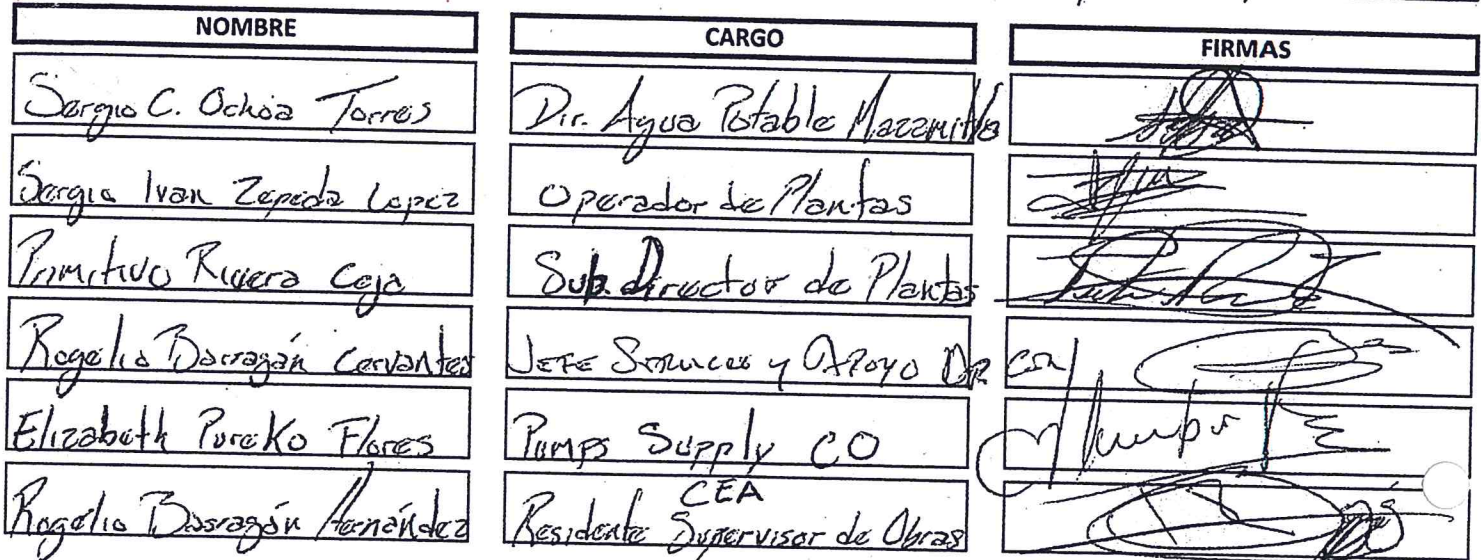 NOMBRE CARGO FIRMAS
Sergio C. Ochoa Torres Dir. Agua Potable Mazamitla
Sergio Ivan Zepeda Lopez Operador de Plantas
Primitivo Rivera Ceja Sub. Director de Plantas
Rogelio Barragán Cervantes JEFE SERVICIOS y APOYO
Elizabeth Pureko Flores Pumps Supply CO
CEA
Rogelio Barragán Hernández Residente Supervisor de Obras